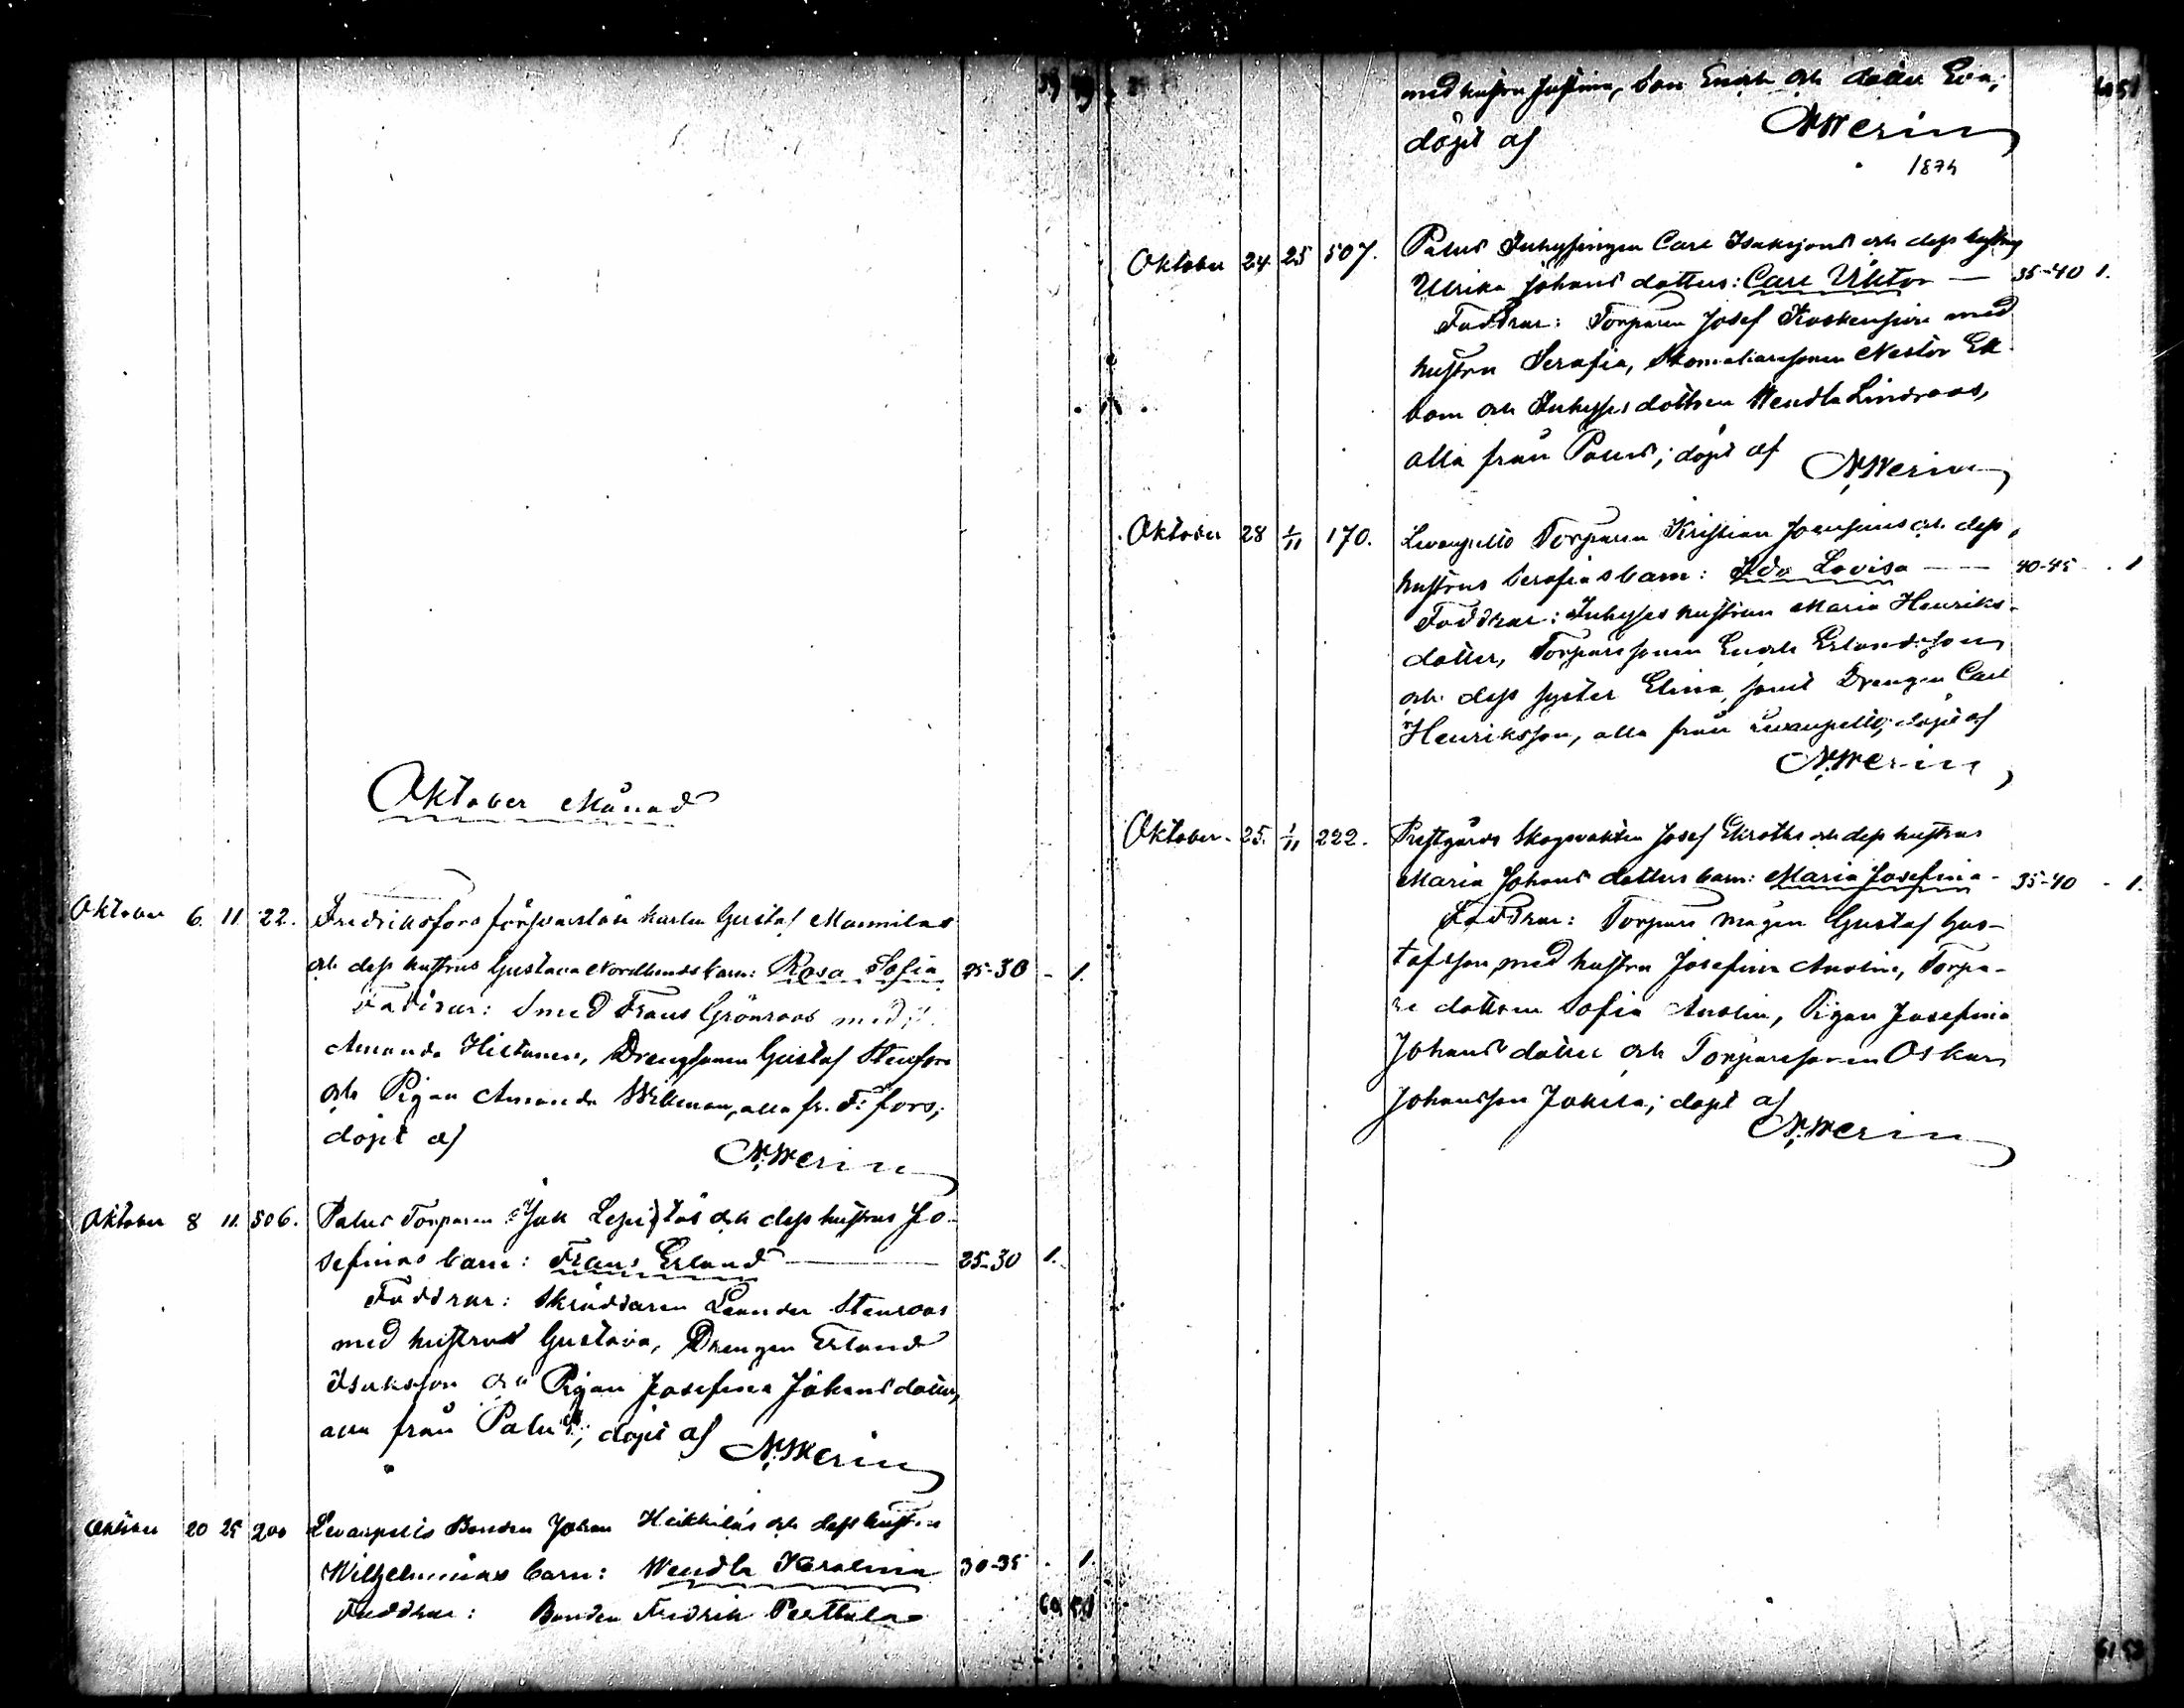 39 49
Oktober Månad
Oktober 6. 11 22. Fredriksfors försvarslöse karlen Gustaf Mannilas
och dess hustrus Gustava Nordlunds barn: Rosa Sofia 25-30 - 1.
Faddrar: Smed Frans Grönroos med
Amanda Hietanen, Drengsonen Gustaf Stenfors
och Pigan Amanda Wellman, alla fr. F:fors;
döpt af
N. Merin
Oktober 8 11. 506. Palus Torparen Isak Lepistös och dess hustrus Jo-
sefinas barn: Frans Erland 25-30 1.
Faddrar: Skräddaren Leander Stenroos
med hustrun Gustava, Drengen Erland
Isaksson och Pigan Josefina Johansdotter,
alla från Palus; döpt af N. Merin
Oktober 20 25 200 Levanpelto Bonden Johan Heikkiläs och dess hustrus
Wilhelminas barn: Wendla Karolina 30-35 . 1.
Faddrar: Bonden Fredrik Perttula
60 51
med hustru Justina, Son Enok och dotter Eva;
60 51
döpt af N. Merin
1874
Oktober 24. 25 507. Palus Inhysingen Carl Isakssons och dess hustrus
Ulrika Johans dotters: Carl Viktor — 35-40 1.
Faddrar: Torparen Josef Koskensivu med
hustru Serafia, Skomakaresonen Nestor Ek-
bom och Inhyses dottren Wendla Lindroos,
alla från Palus; döpt af N. Merin
Oktober 28 1/11 170. Levanpelto Torparen Kristian Joensuus och dess
hustrus Serafias barn: Ida Lovisa — 40-45 . 1
Faddrar: Inhyses hustrun Maria Henriks-
dotter, Torparesonen Enok Erlandsson
och dess syster Elina, samt Drengen Carl
Henriksson, alla från Levanpelto; döpt af
N. Merin
Oktober. 25. 1/11 222. Prestgårds Skogsvakten Josef Ekroths och dess hustrus
Maria Johans dotters barn: Maria Josefina - 35-40 - 1.
Faddrar: Torpare mågen Gustaf Gus-
tafsson med hustru Josefina Anolin, Torpa-
re dottren Sofia Anolin, Pigan Josefina
Johans dotter och Torparesonen Oskar
Johansson Jakila; döpt af
N. Merin
61 53